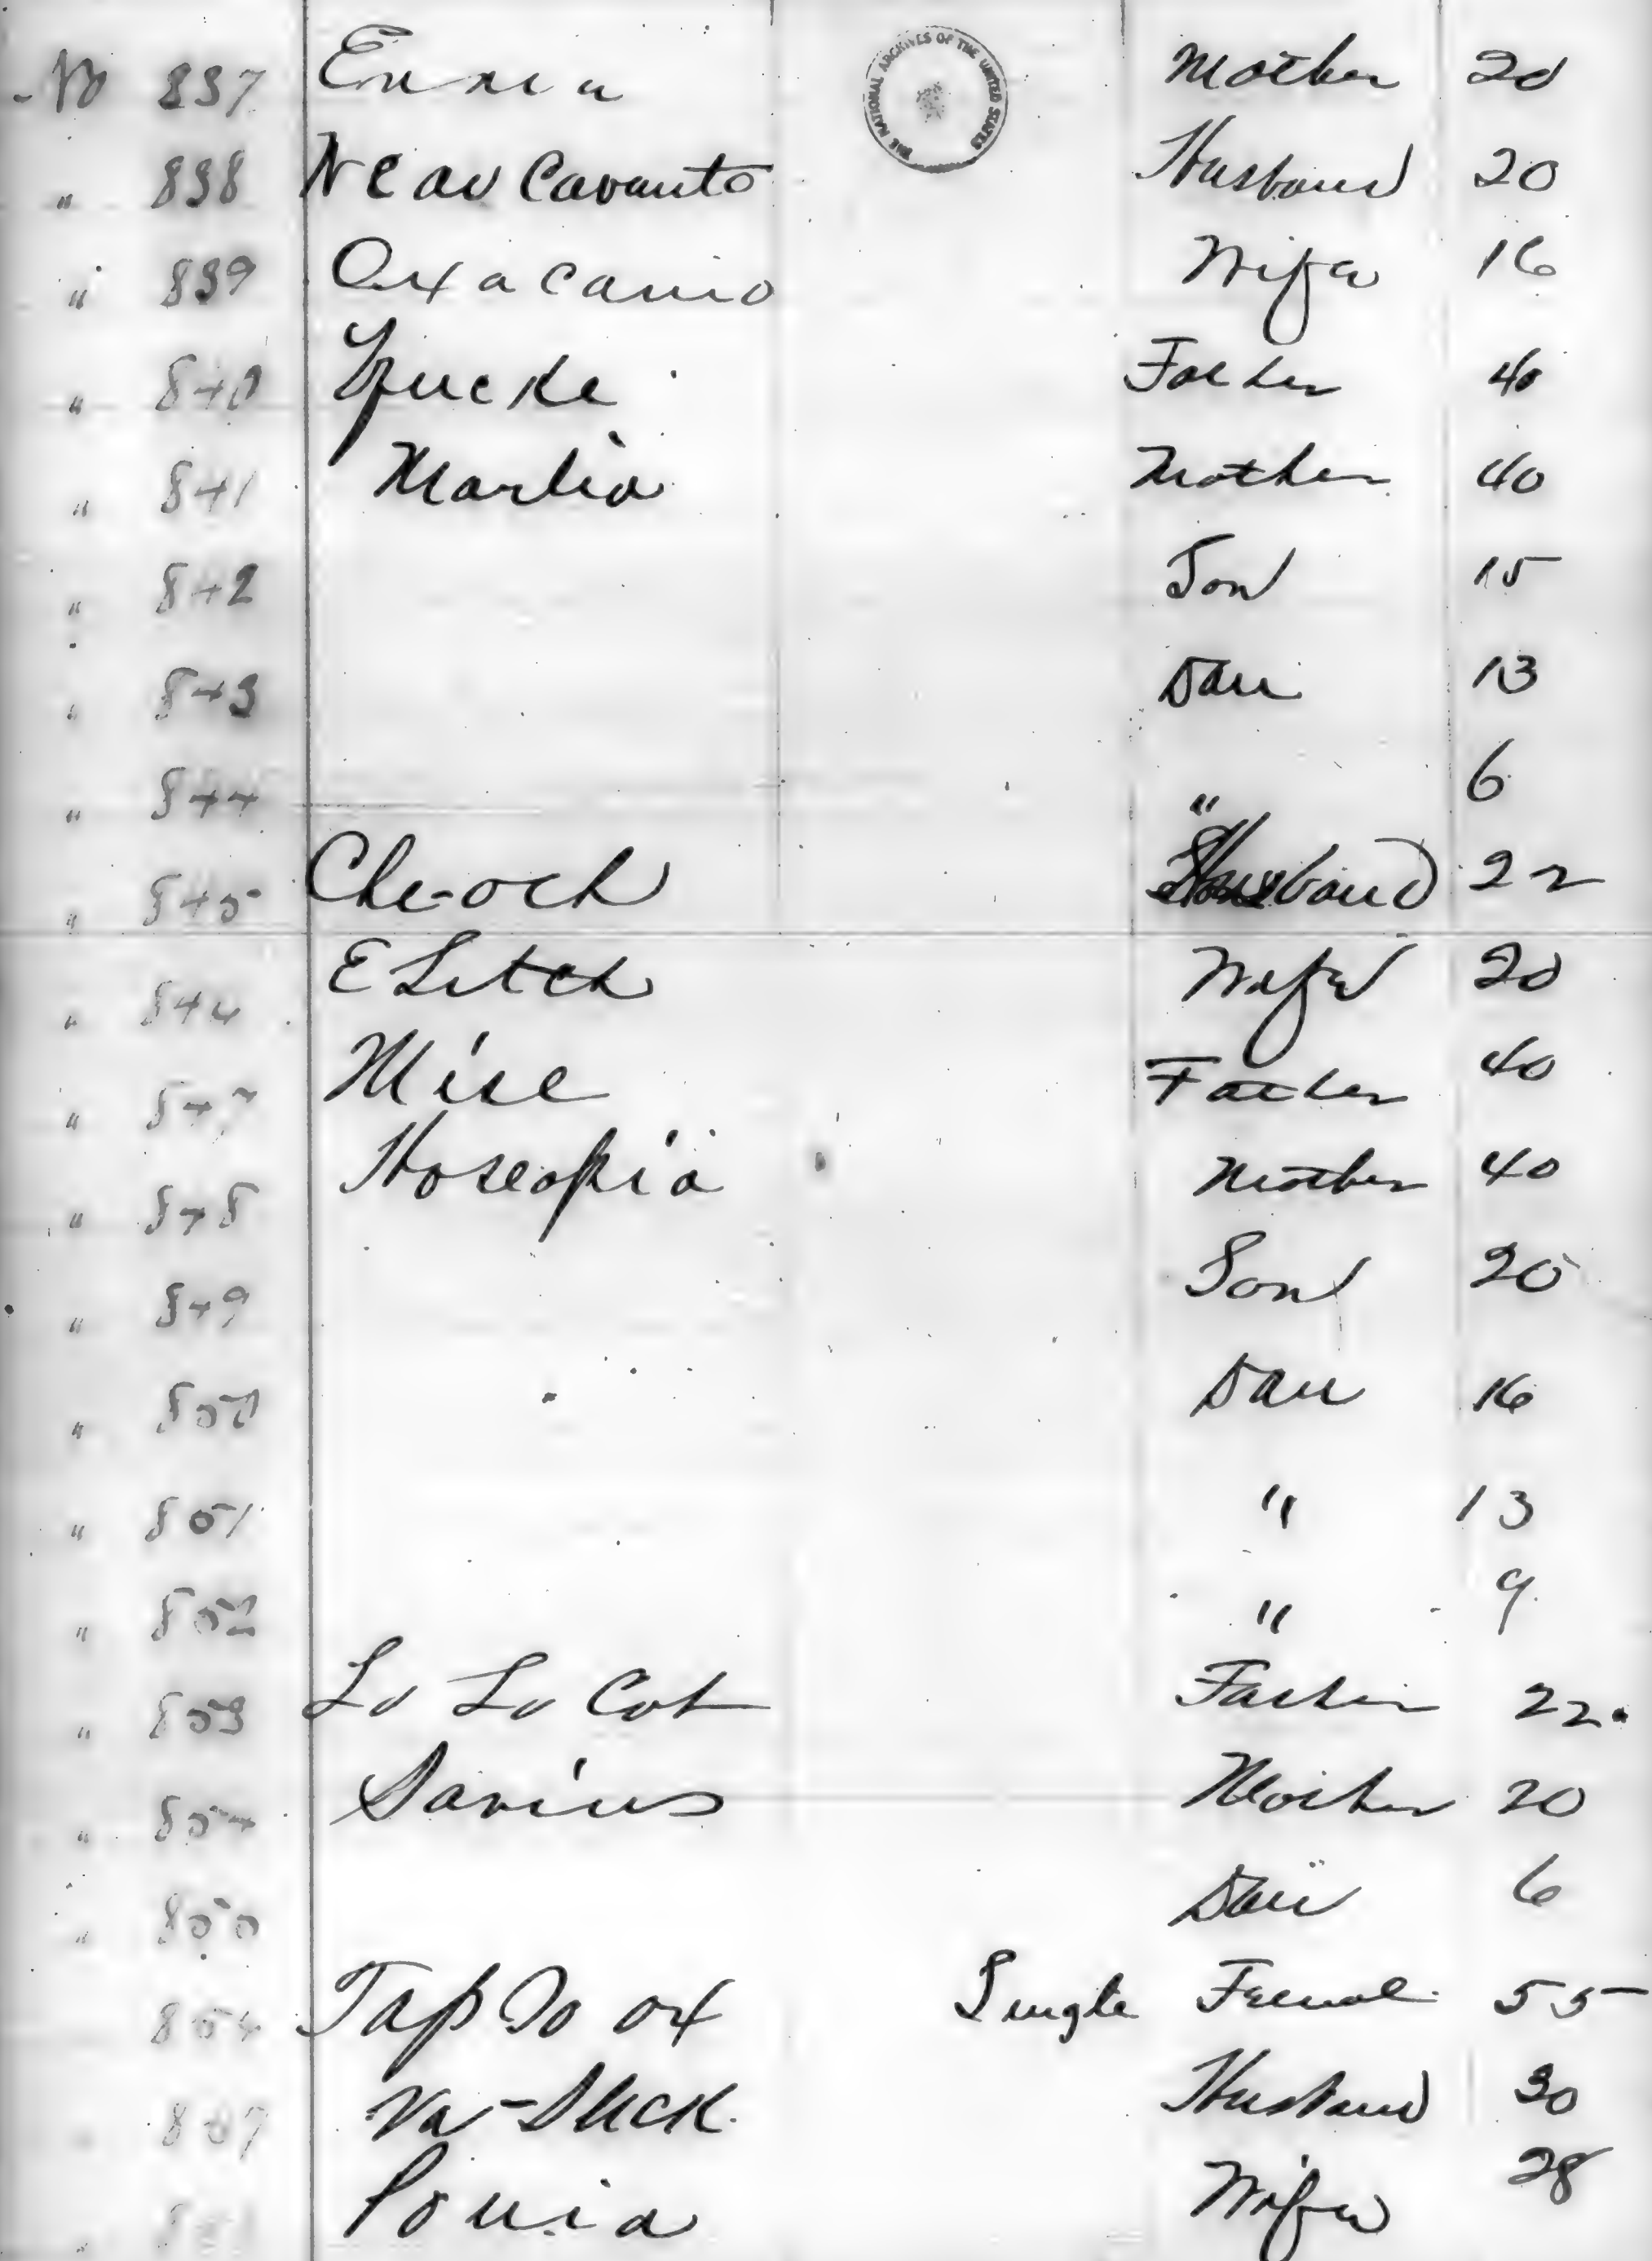 THE NATIONAL ARCHIVES OF THE UNITED STATES
No 837 Emma Mother 20
" 838 Neav Cavanto Husband 20
" 839 Oxacamo Wife 16
" 840 Father 40
" 841 Marlia Mother 40
" 842 Son 15
" 843 Dau 13
" 844 " 6
" 845 Che-och Husband 22
" 846 E Litch Wife 20
" 847 Mise Father 40
" 848 Hoseopia Mother 40
" 849 Son 20
" 850 Dau 16
" 851 " 13
" 852 " 9
" 853 Lo Lo Cot Father 22
" 854 Darius Mother 20
" 855 Dau 6
856 Single Female 55
857 Va-Duck Husband 30
" 858 Pouia Wife 28